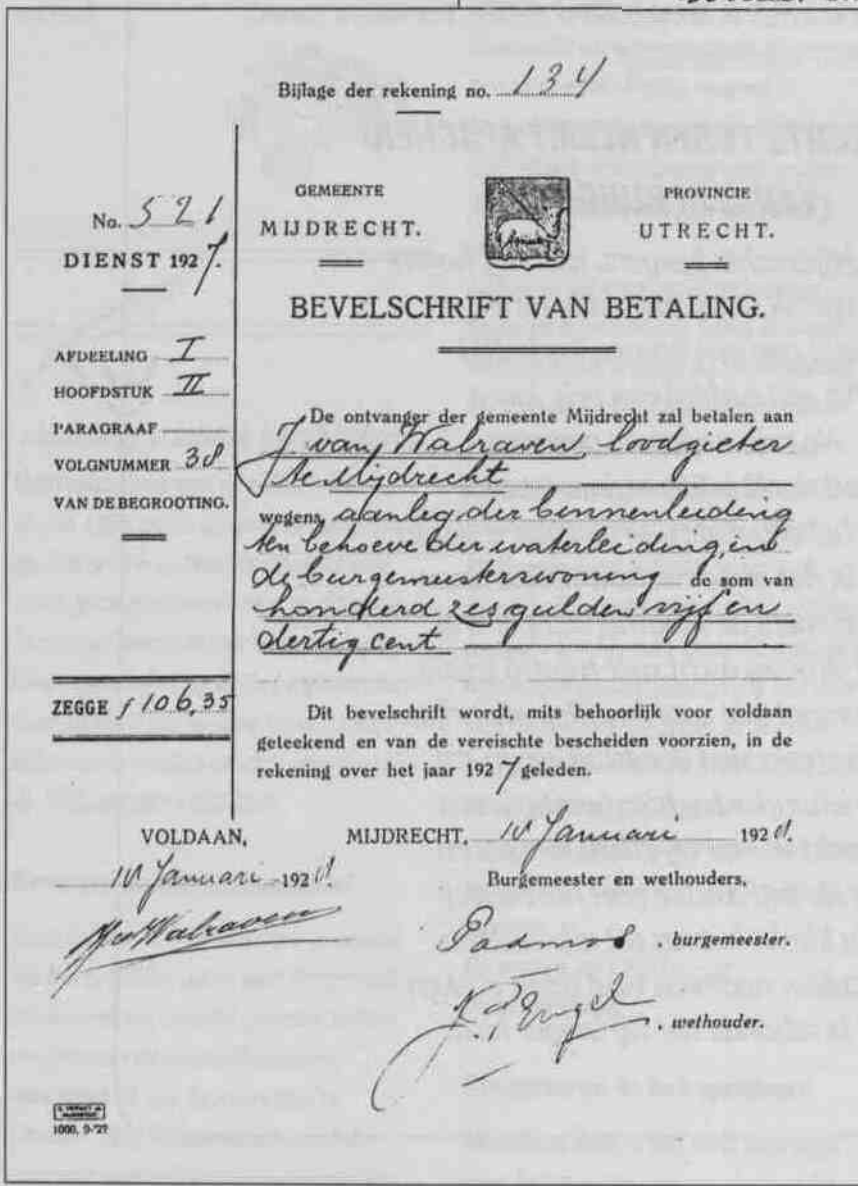 Bijlage der rekening no. 134
No. 521
DIENST 1927.
AFDEELING I
HOOFDSTUK II
PARAGRAAF
VOLGNUMMER 38
VAN DE BEGROOTING.
ZEGGE f 106,35
GEMEENTE
MIJDRECHT.
PROVINCIE
UTRECHT.
BEVELSCHRIFT VAN BETALING.
De ontvanger der gemeente Mijdrecht zal betalen aan
J. van Walraven, loodgieter
te Mijdrecht
wegens aanleg der binnenleiding
ten behoeve der waterleiding, in
de burgemeesterswoning de som van
honderd zes gulden vijf en
dertig cent
Dit bevelschrift wordt, mits behoorlijk voor voldaan
geteekend en van de vereischte bescheiden voorzien, in de
rekening over het jaar 1927 geleden.
VOLDAAN,
Januari 192
Walraven
MIJDRECHT, Januari 192
Burgemeester en wethouders.
Padmos burgemeester.
Engel, wethouder.
1000, 9-'27